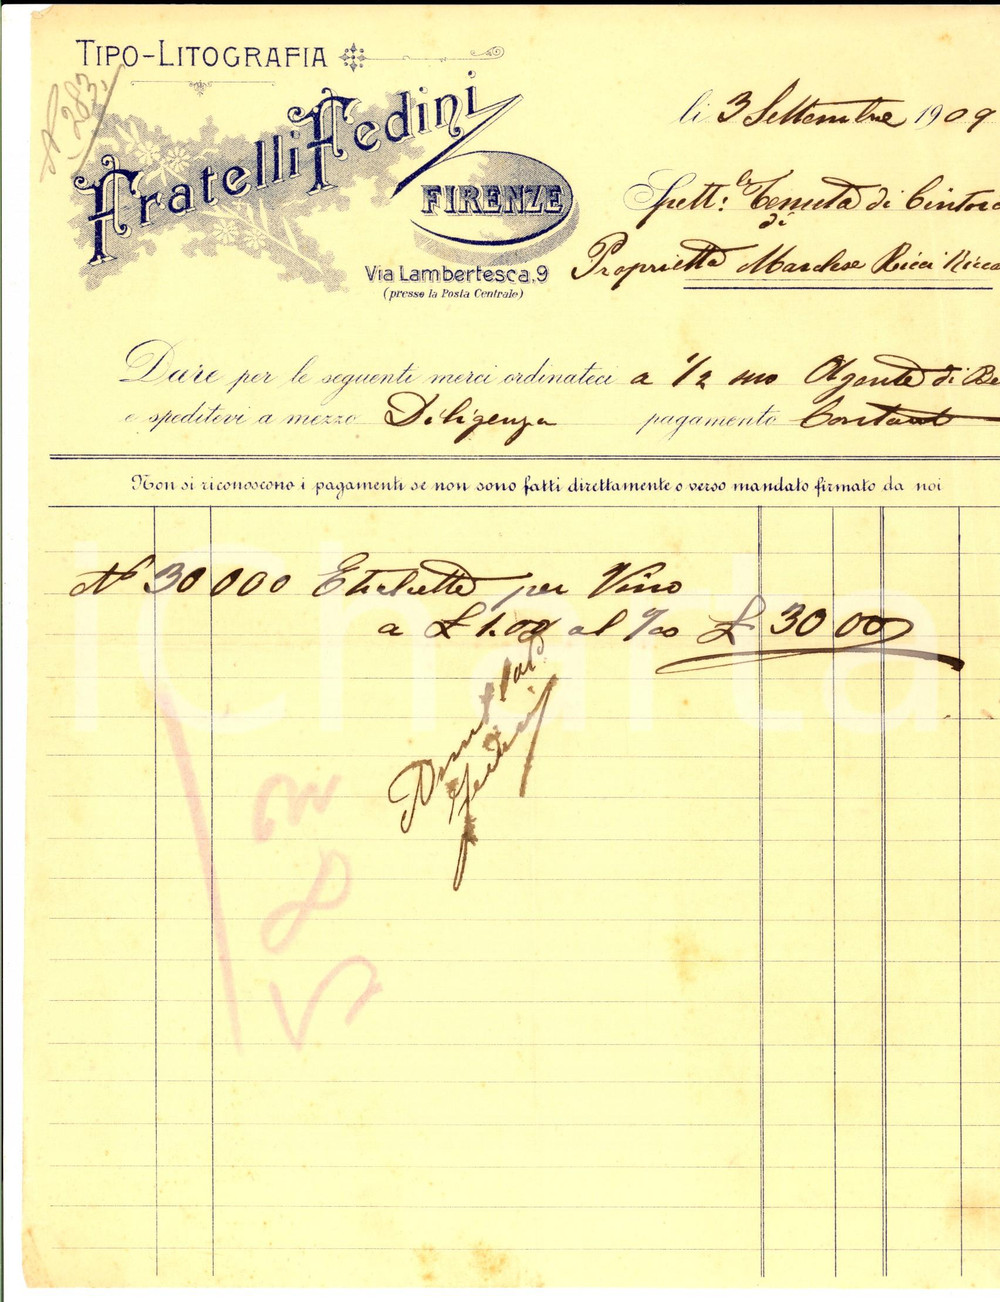 TIPO-LITOGRAFIA
Fratelli Fedini
FIRENZE
Via Lambertesca, 9
(presso la Posta Centrale)
N 283
li 3 Settembre 1909
Spett.le Tenuta di Cintoia
di
Proprietta Marchese Ricci Ricca
Dare per le seguenti merci ordinateci a 1/2 suo Agente di Be
e speditevi a mezzo Diligenza pagamento Contant
Non si riconoscono i pagamenti se non sono fatti direttamente o verso mandato firmato da noi
N 30000 Etichette per Vino
a £ 1.00 al %00 £ 30 00
Fedini
583
iCharta